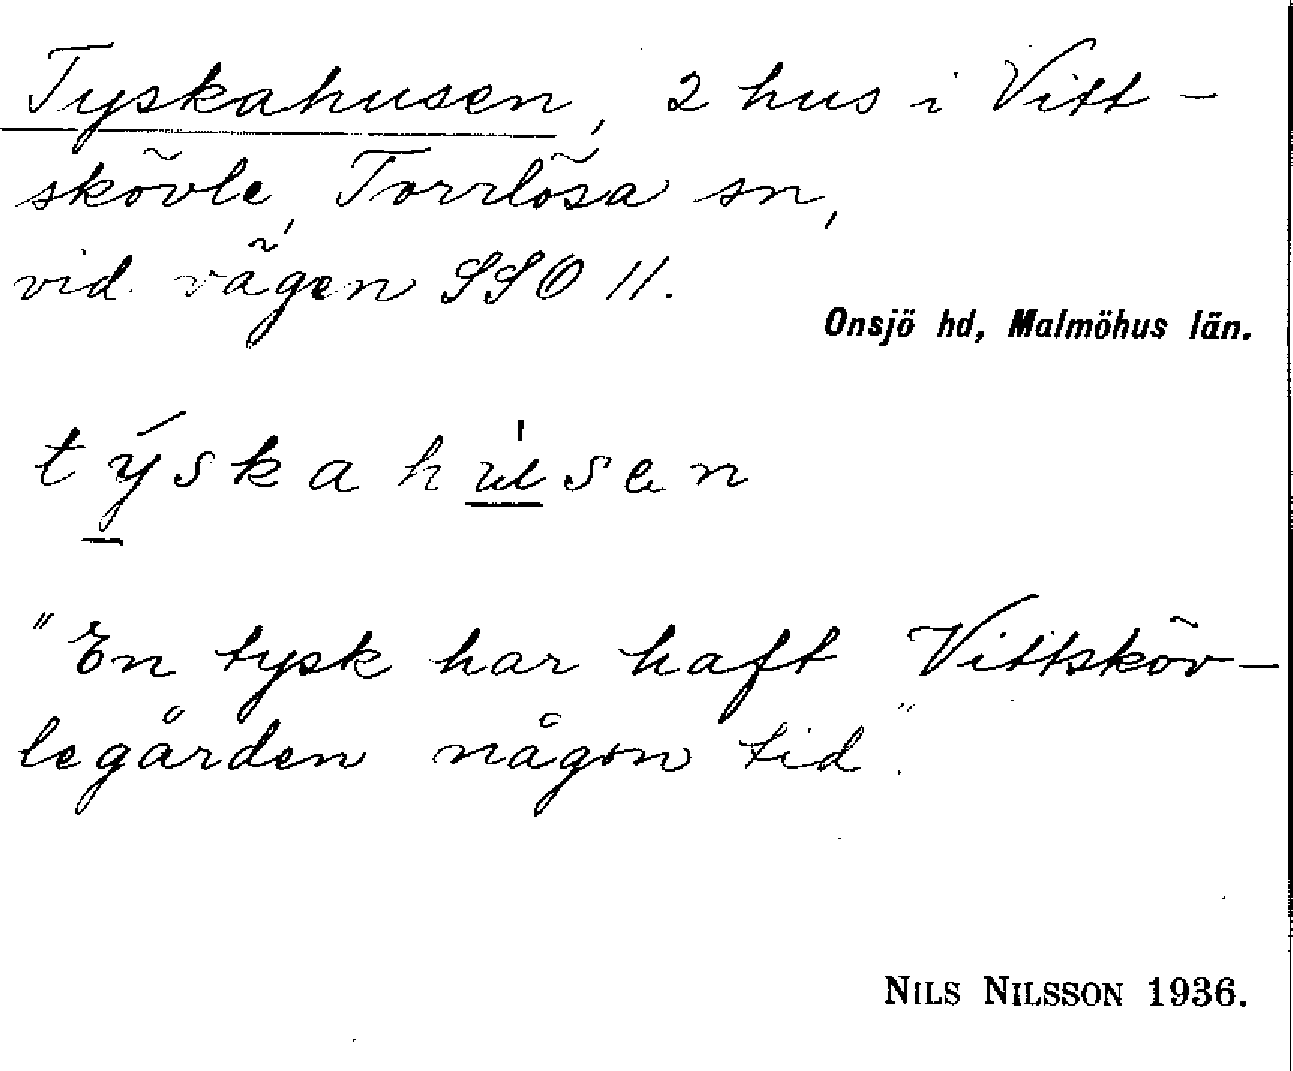 Tyskahusen, 2 hus i Vitt-
skövle, Torrlösa sn,
vid vägen SSO 11.
Onsjö hd, Malmöhus län.
týskahu̍sen
"En tysk har haft Vittsköv-
legården någon tid".
NILS NILSSON 1936.